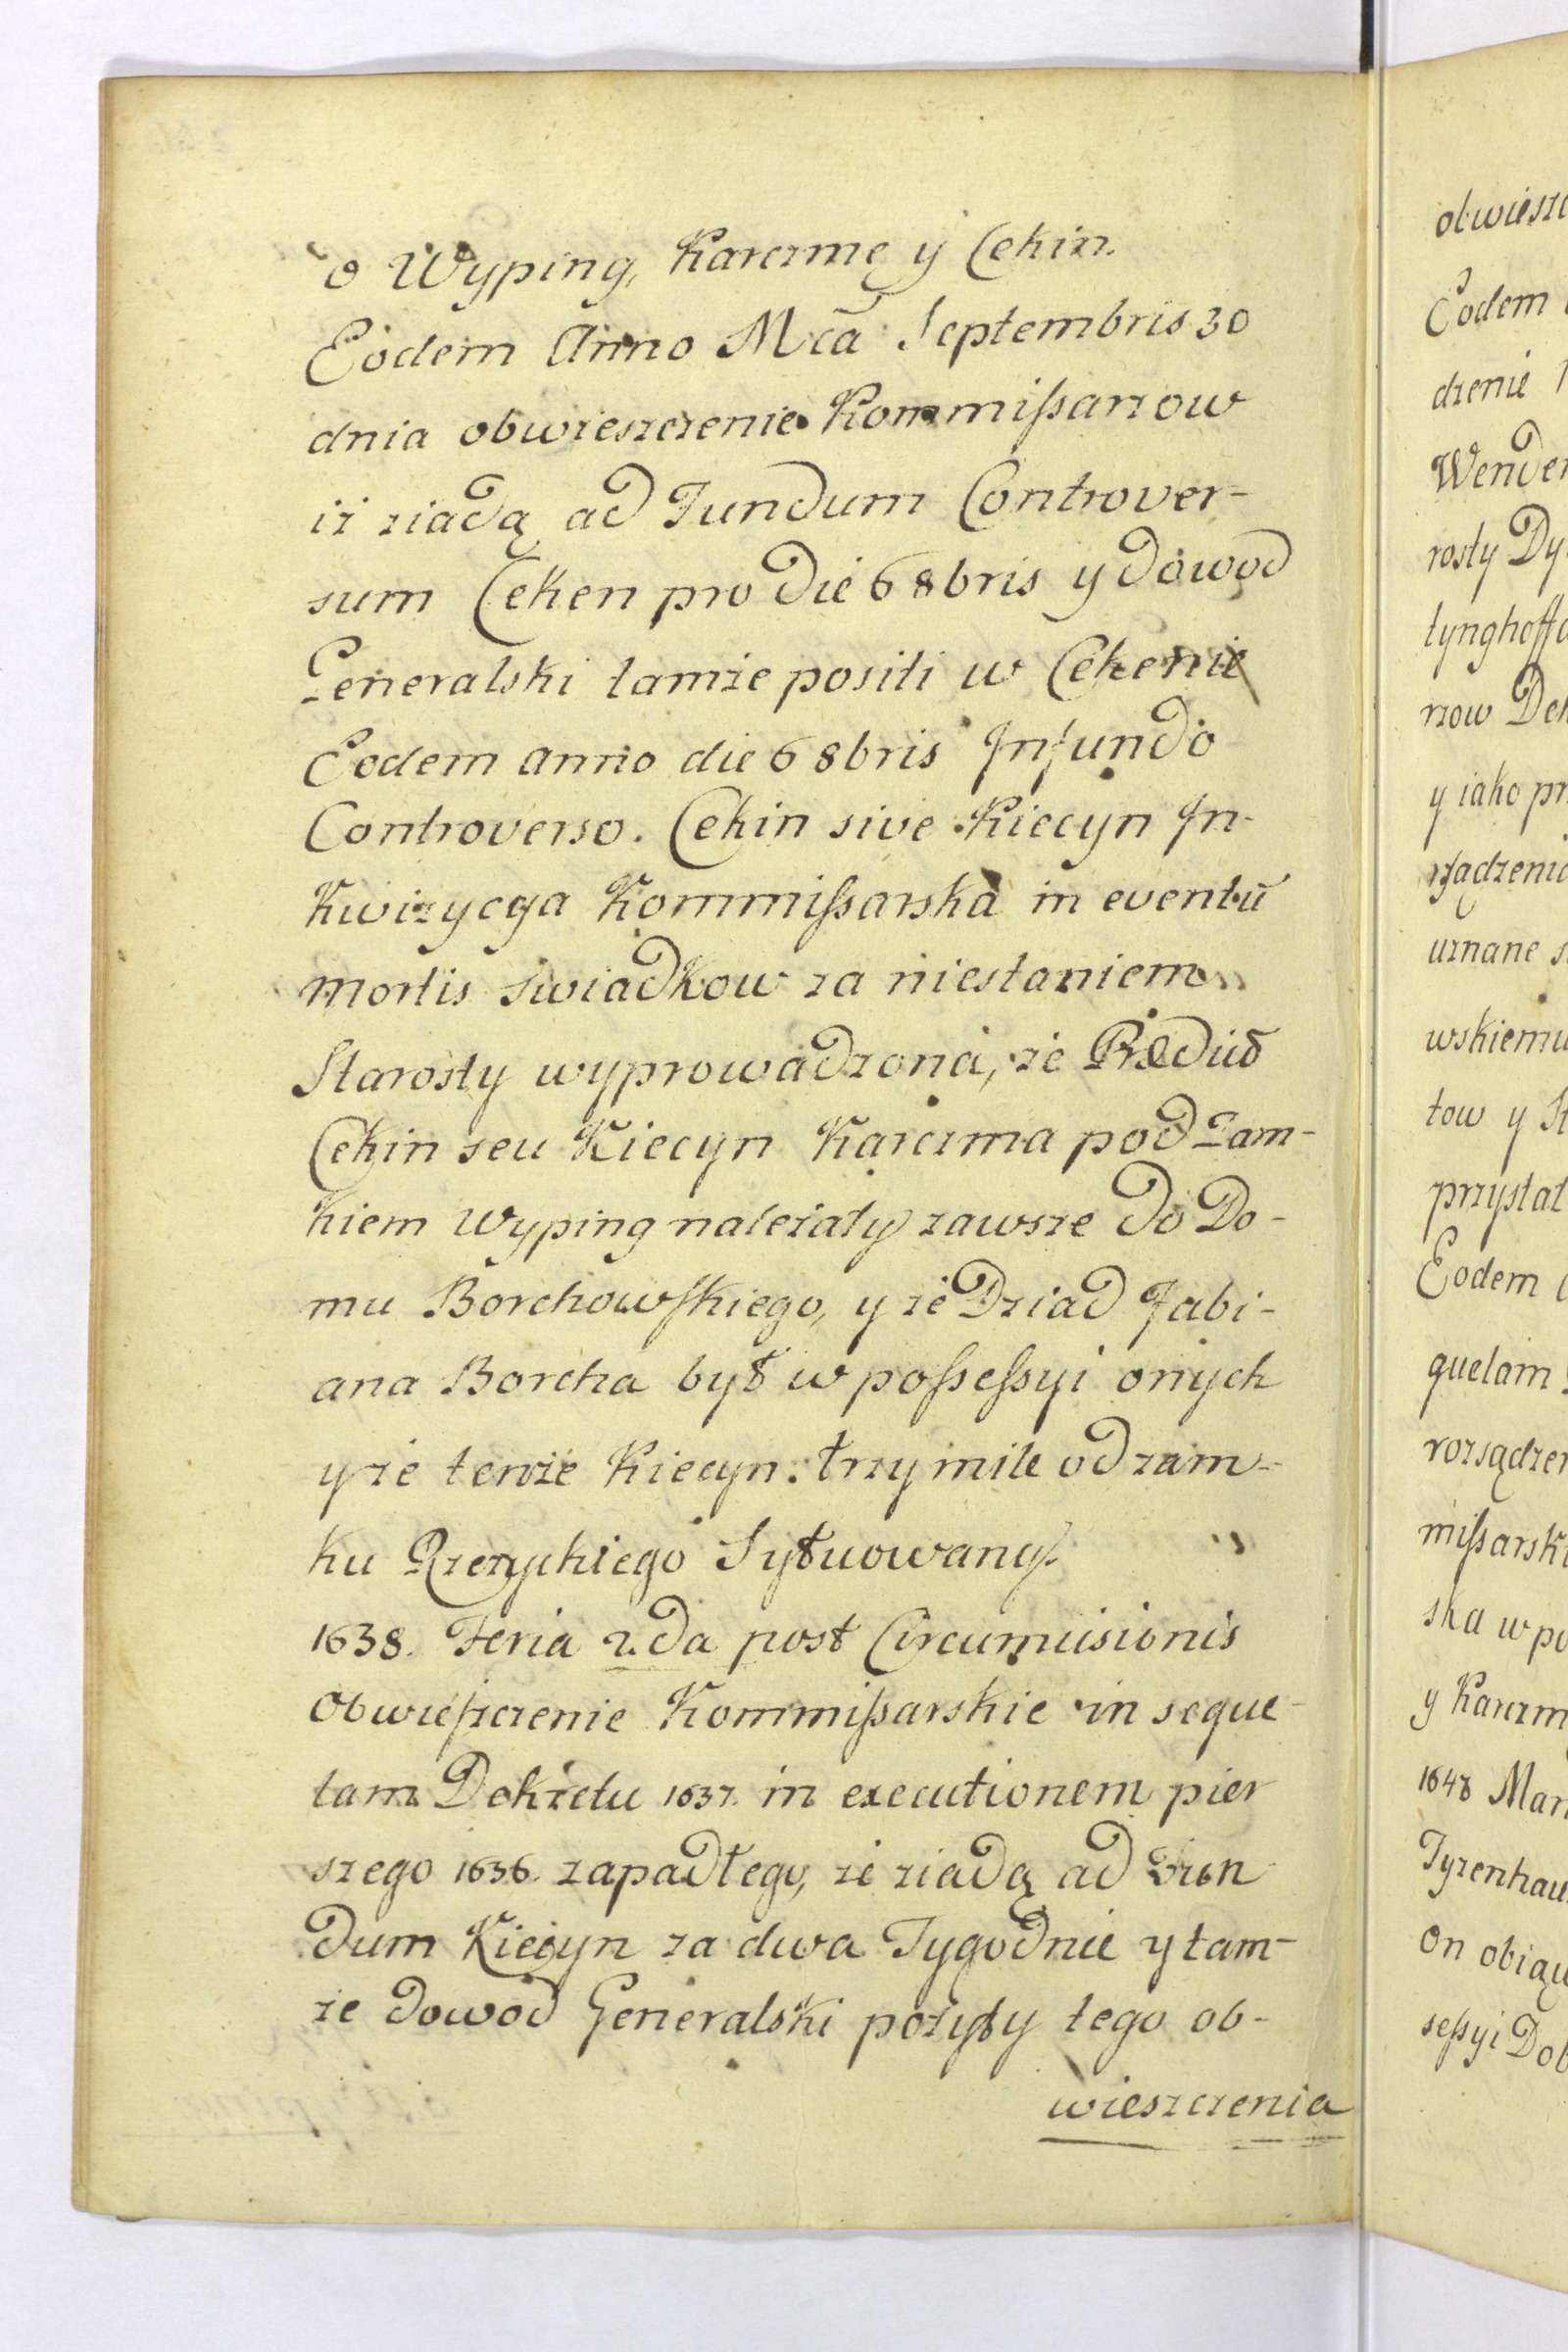 o Wyping, Karczmę y Cekin.
Eodem Anno Mca Septembris 30
dnia obwieszczenie Kommissarzow
iż ziadą ad Fundum Controver-
sum Ceken pro die 6 8bris y dowod
Generalski tamże positi w Cekenie
Eodem anno die 6 8bris In fundo
Controverso. Cekin sive Kiecyn In-
kwizycya Kommissarska in eventū
mortis swiadkow za niestaniem
Starosty wyprowadzona, że
Cekin seu Kiecyn Karczma pod Zam-
kiem Wyping należały zawsze do Do-
mu Borchowskiego, y że Dziad Fabi-
ana Borcha był w possessyi onych
y że tenże Kiecyn trzy mile od zam-
ku Rzezyckiego Sytuowany.
1638. Feria 2.da post Circumcisionis
Obwieszczenie Kommissarskie in seque-
lam Dekretu 1637. in executionem pier
szego 1636. zapadłego, że ziadą ad
dum Kiecyn za dwa Tygodnie y tam-
że dowod Generalski położy tego ob-
wieszczenia
obwieszc
Eodem
dzenie
Wenden
rosty Dy
tynghoffa
rzow Dek
y iako pr
sądzenia
uznane s
wskiemu
tow y
przystał
Eodem
quelam
rozsądzen
missarsk
ska w po
y Karczm
1648 Mar
Tyzenhau
On obiąz
sessyi Dob